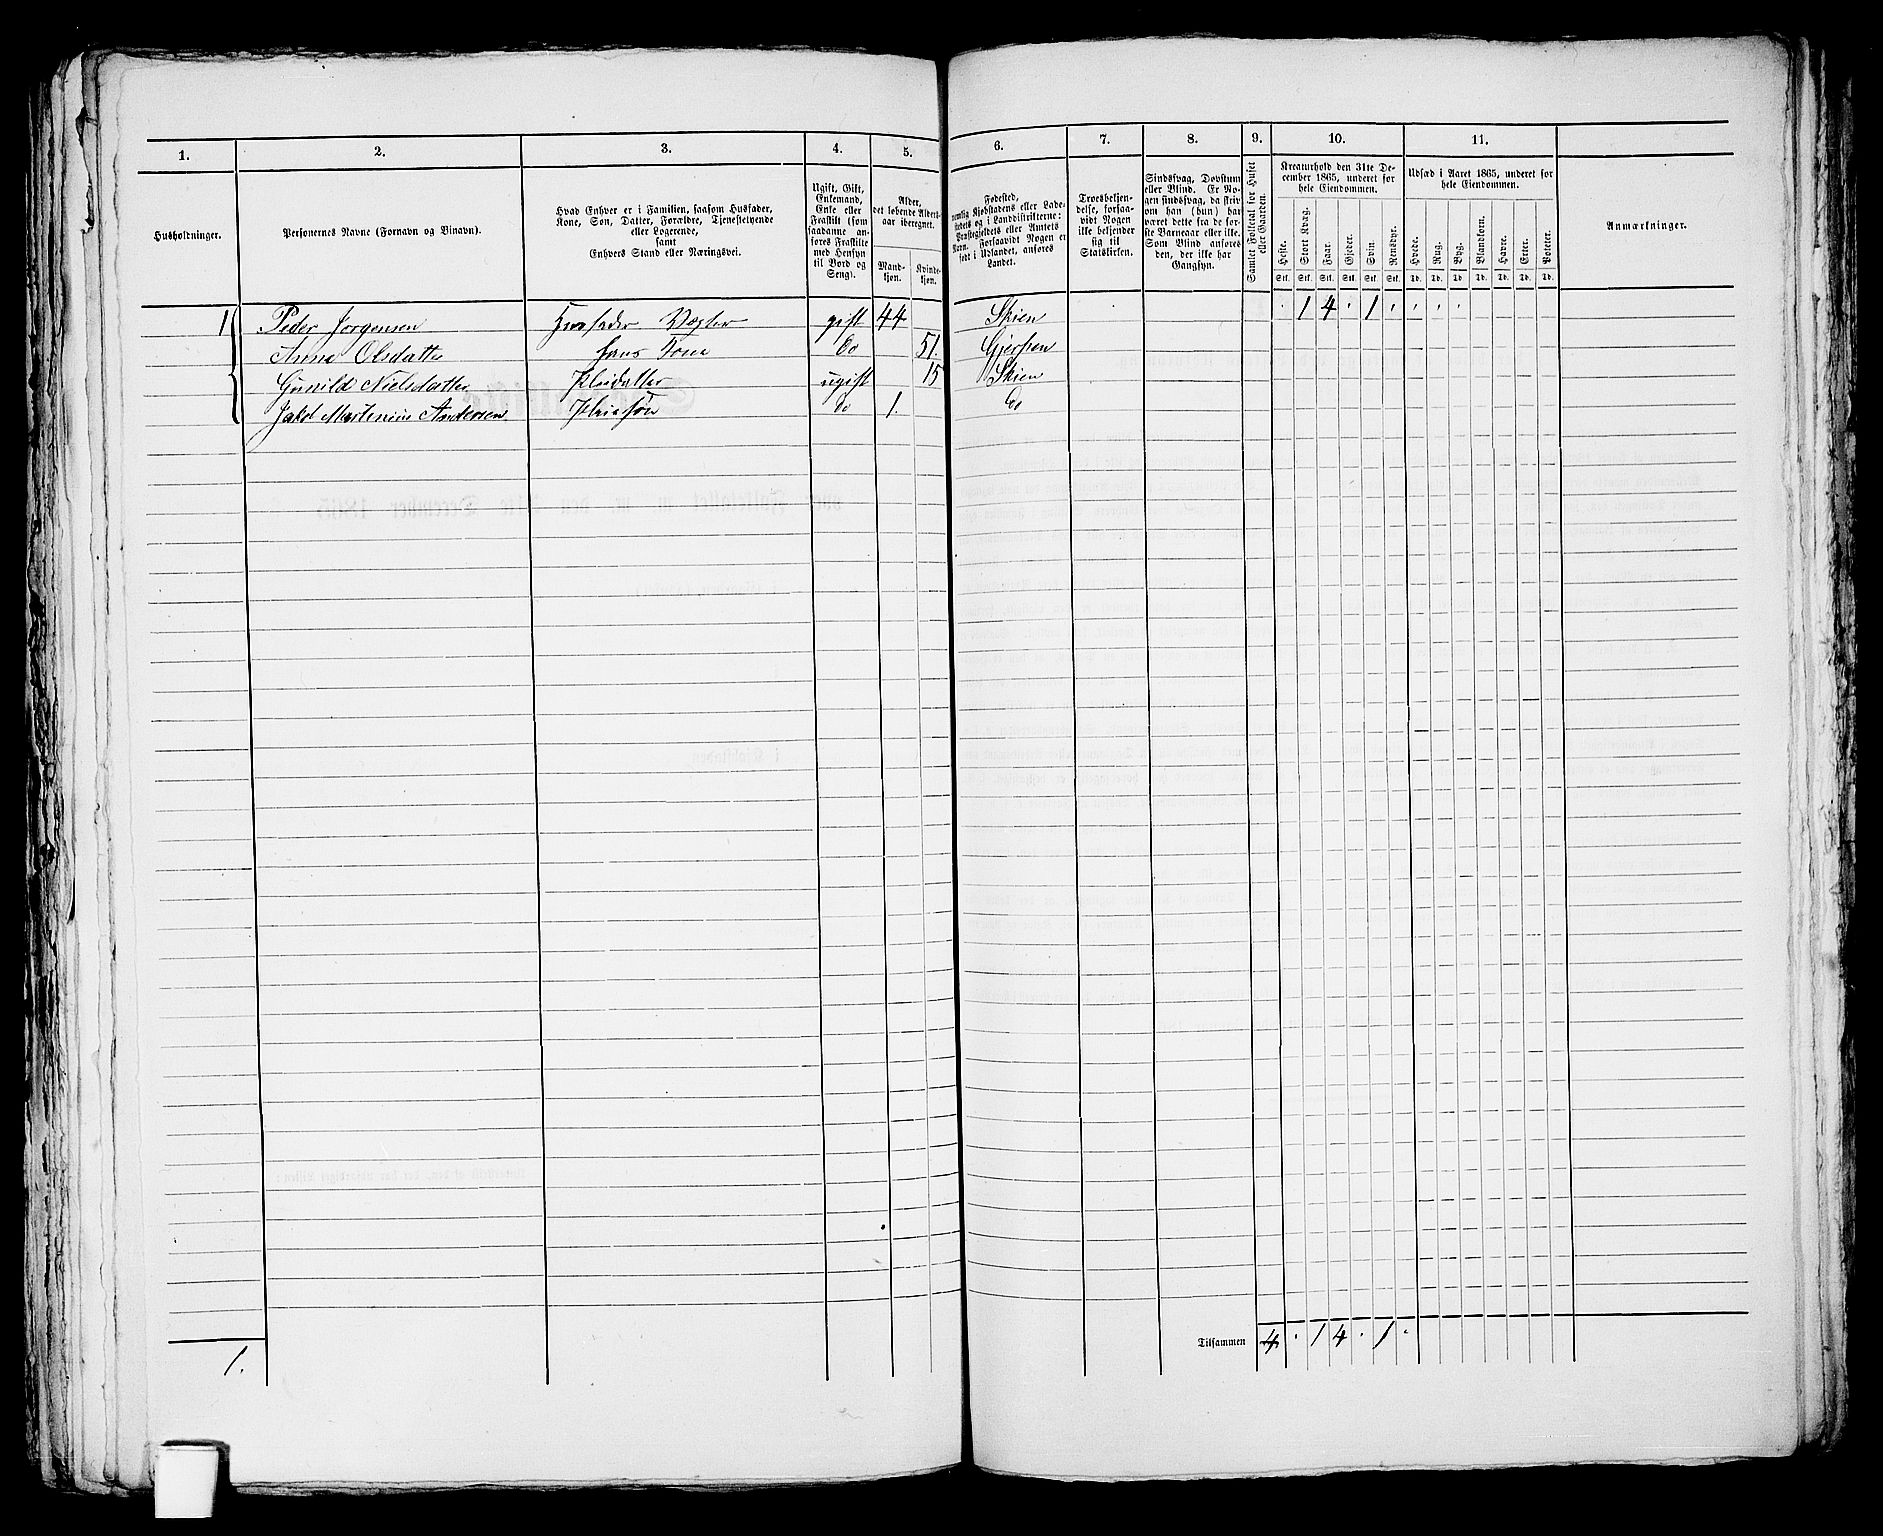 1.
2.
3.
4.
5.
6.
7.
8.
9.
10.
11.
Husholdninger.
Personernes Navne (Fornavn og Binavn).
Hvad Enhver er i Familien, saasom Husfader,
Kone, Søn, Datter, Forældre, Tjenestetyende
eller Logerende,
samt
Enhvers Stand eller Næringsvei.
Ugift, Gift,
Enkemand,
Enke eller
Fraskilt (som
saadanne an-
føres Fraskilte
med Hensyn
til Bord og
Seng).
Alder,
det løbende Alders-
aar iberegnet.
Mand-
kjøn.
Kvinde-
kjøn.
Fødested,
nemlig Kjøbstadens eller Lade-
stedets og i Landdistrikterne:
Præstegjeldets eller Amtets
Navn. Forsaavidt Nogen er
født i Udlandet, anføres
Landet.
Troesbekjen-
delse, forsaa-
vidt Nogen
ikke bekjender
sig til
Statskirken.
Sindssvag, Døvstum
eller Blind. Er No-
gen sindssvag, da skriv
om han (hun) har
været dette fra de før-
ste Barneaar eller ikke.
Som Blind anføres
den, der ikke har
Gangsyn.
Samlet Folketal for Huset
eller Gaarden.
Kreaturhold den 31te De-
cember 1865, underet for
hele Eiendommen.
Heste. Stort Kvæg. Faar. Gjeder. Svin. Rensdyr.
Stk. Stk. Stk. Stk. Stk. Stk.
Udsæd i Aaret 1865, underet for
hele Eiendommen.
Hvede. Rug. Byg. Blandkorn. Havre. Erter. Poteter.
Td. Td. Td. Td. Td. Td. Td.
Anmærkninger.
1 Peder Jørgensen Husfader Vægter gift 44 Skien . 1 4 . 1 . . . .
Anne Olsdatter hans Kone do 51. Gjerpen
Gunild Nielsdatter Pleidatter ugift 15 Skien
Jakob Martinius Andersen Pleiesøn do 1. do
1.
Tilsammen 4 . 1 4 . 1 .